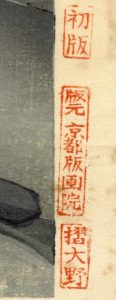 初版
版元京都版画院
摺大野